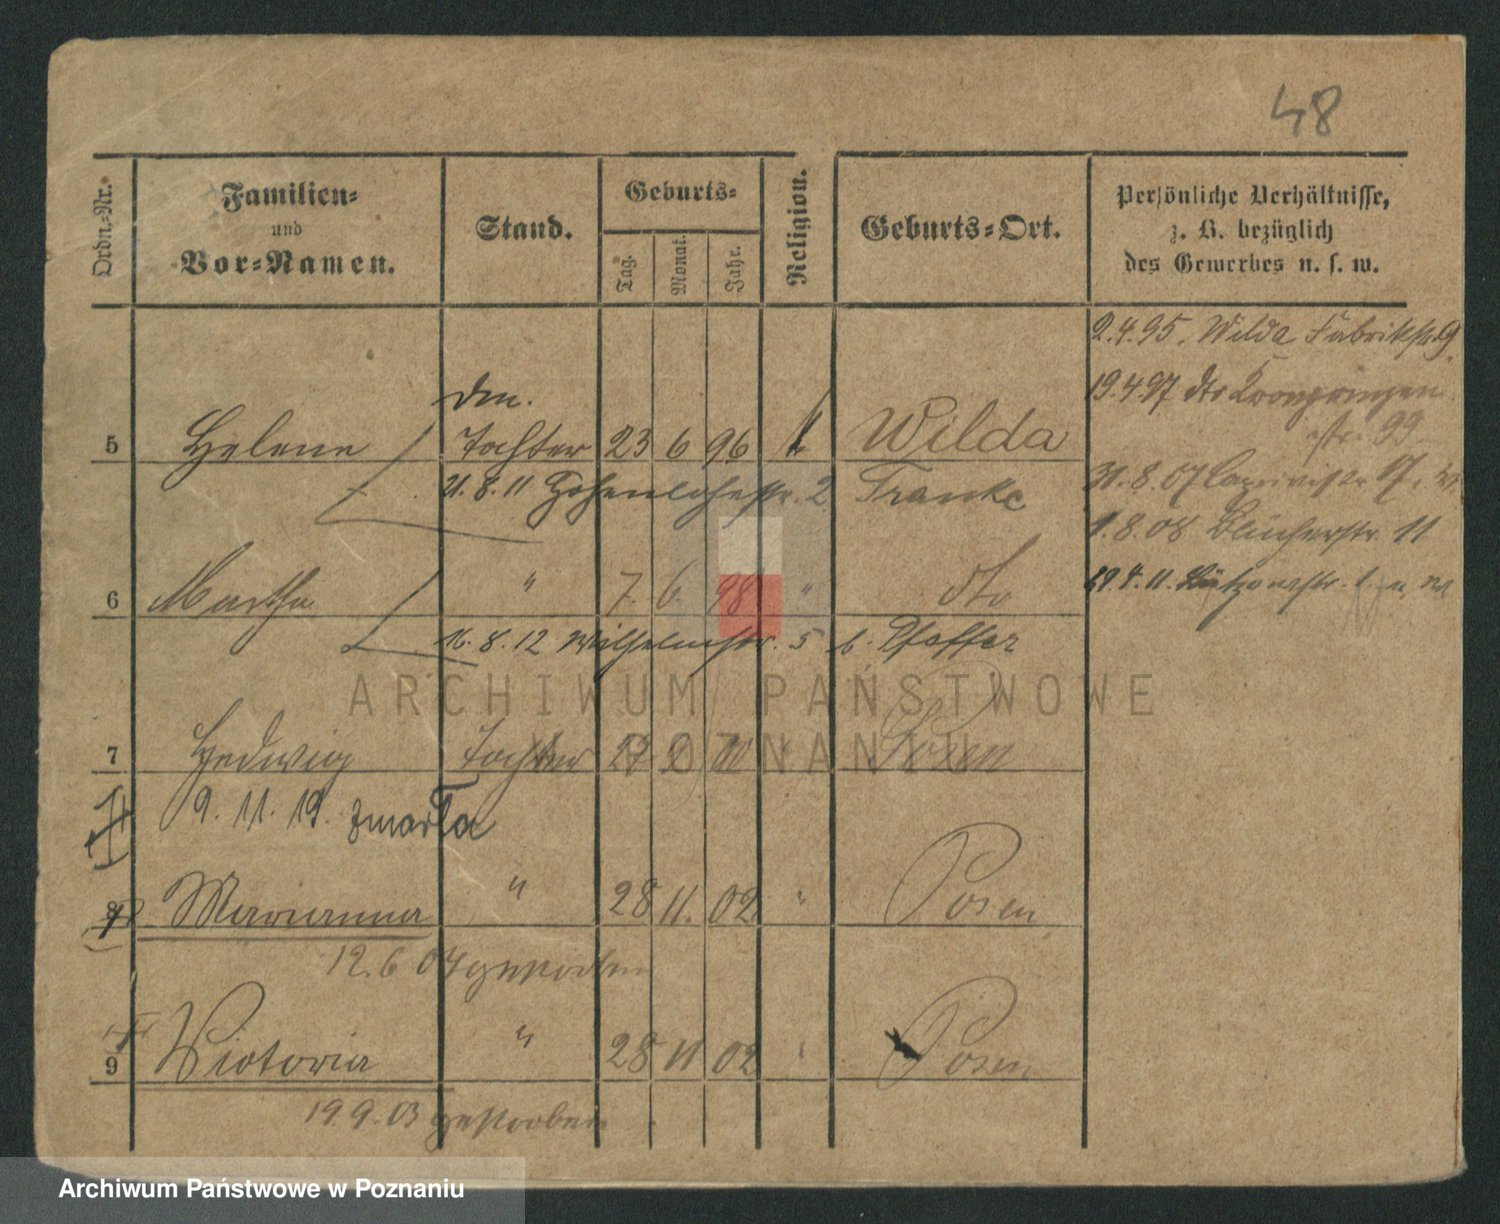 48
Ordn.-Nr.
Familien-
und
Vor-Namen.
Stand.
Geburts-
Tag.
Monat.
Jahr.
Religion.
Geburts-Ort.
Persönliche Verhältnisse,
z. B. bezüglich
des Gewerbes u. s. w.
2.4.95. Wilda Fabrikstr. 9
19.4.97 dto Kronprinzen
str. 99
5 Helene Tochter 23 6 96 k Wilda
21.8.11 Hohenlohestr. 2 Franke
31.8.07
1.8.08 Blücherstr. 11
6 Martha " 7. 6. 98 " dto
29.4.11. Lützowstr.
16.8.12 Wilhelmstr. 5 b. Pfeffer
7 Hedwig Tochter Posen
9. 11. 19. zmarła
8 Marianna " 28 11. 02 " Posen
12.6 04 gestorben
9 Victoria " 28 11 02 " Posen
19 9. 03 gestorben
ARCHIWUM PAŃSTWOWE
W POZNANIU
Archiwum Państwowe w Poznaniu